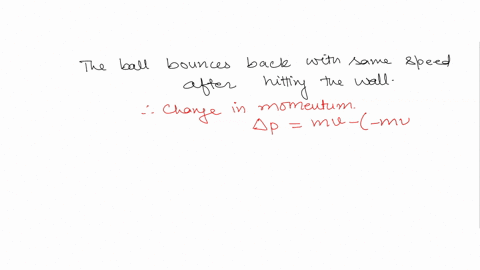 The ball bounces back with same speed
after hitting the wall.
∴ Change in momentum.
Δp = mv-(-mv